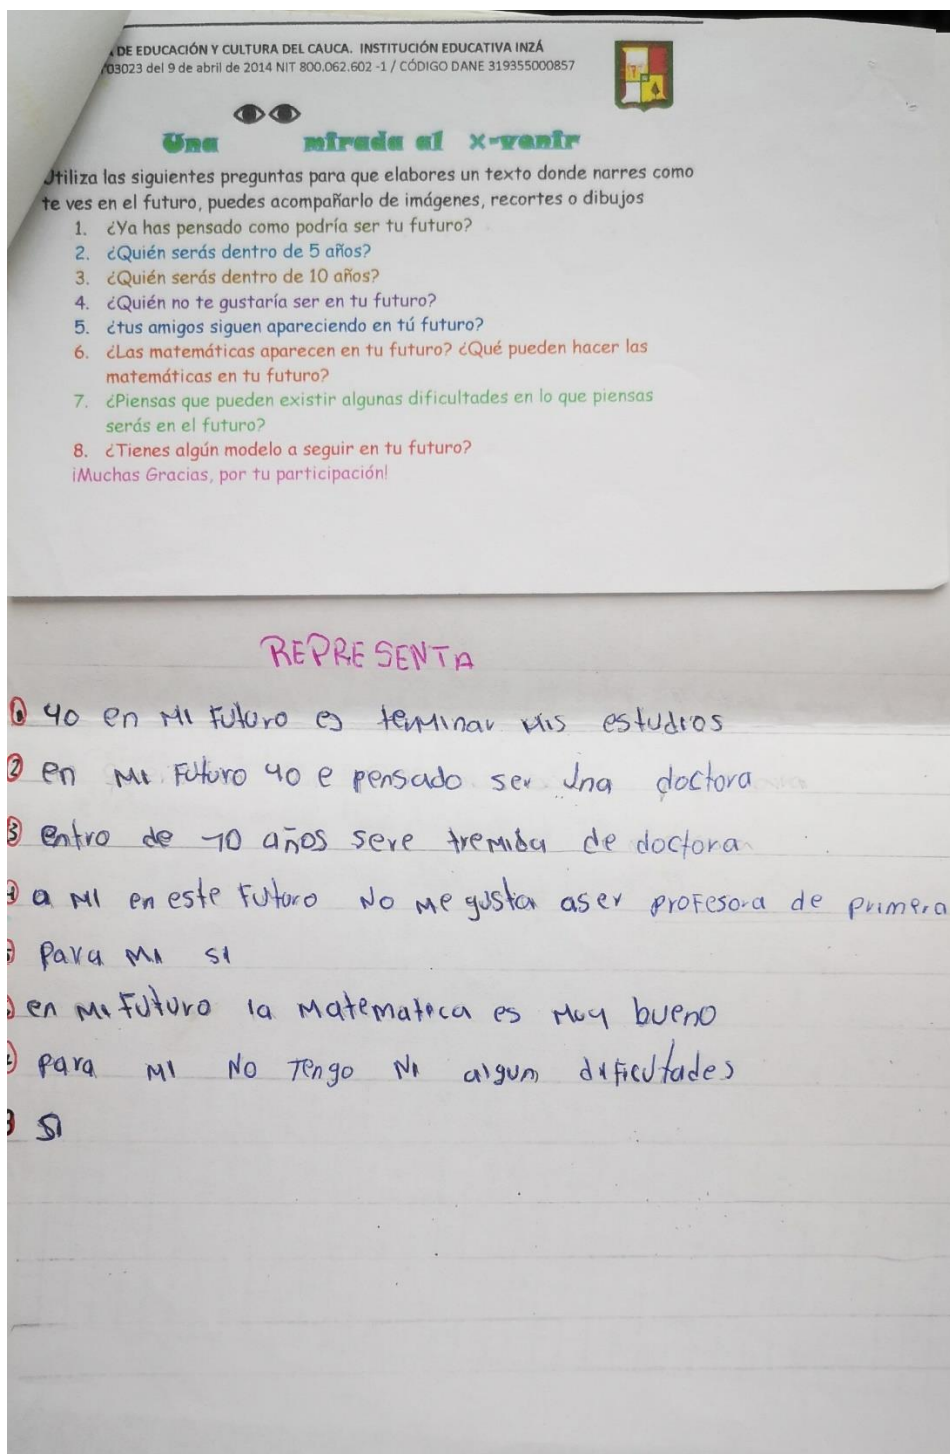 DE EDUCACIÓN Y CULTURA DEL CAUCA. INSTITUCIÓN EDUCATIVA INZÁ
03023 del 9 de abril de 2014 NIT 800.062.602 -1 / CÓDIGO DANE 319355000857
Una mirada al x-venir
Utiliza las siguientes preguntas para que elabores un texto donde narres como
te ves en el futuro, puedes acompañarlo de imágenes, recortes o dibujos
1. ¿Ya has pensado como podría ser tu futuro?
2. ¿Quién serás dentro de 5 años?
3. ¿Quién serás dentro de 10 años?
4. ¿Quién no te gustaría ser en tu futuro?
5. ¿tus amigos siguen apareciendo en tú futuro?
6. ¿Las matemáticas aparecen en tu futuro? ¿Qué pueden hacer las
matemáticas en tu futuro?
7. ¿Piensas que pueden existir algunas dificultades en lo que piensas
serás en el futuro?
8. ¿Tienes algún modelo a seguir en tu futuro?
¡Muchas Gracias, por tu participación!
REPRESENTA
① yo en mi Futuro es terminar mis estudios
② en mi Futuro yo e pensado ser una doctora
③ entro de 10 años sere tremida de doctora
④ a mi en este Futuro No me gusta aser profesora de primera
⑤ Para mi si
en mi Futuro la matematica es muy bueno
para mi No Tengo Ni algum dificultades
si